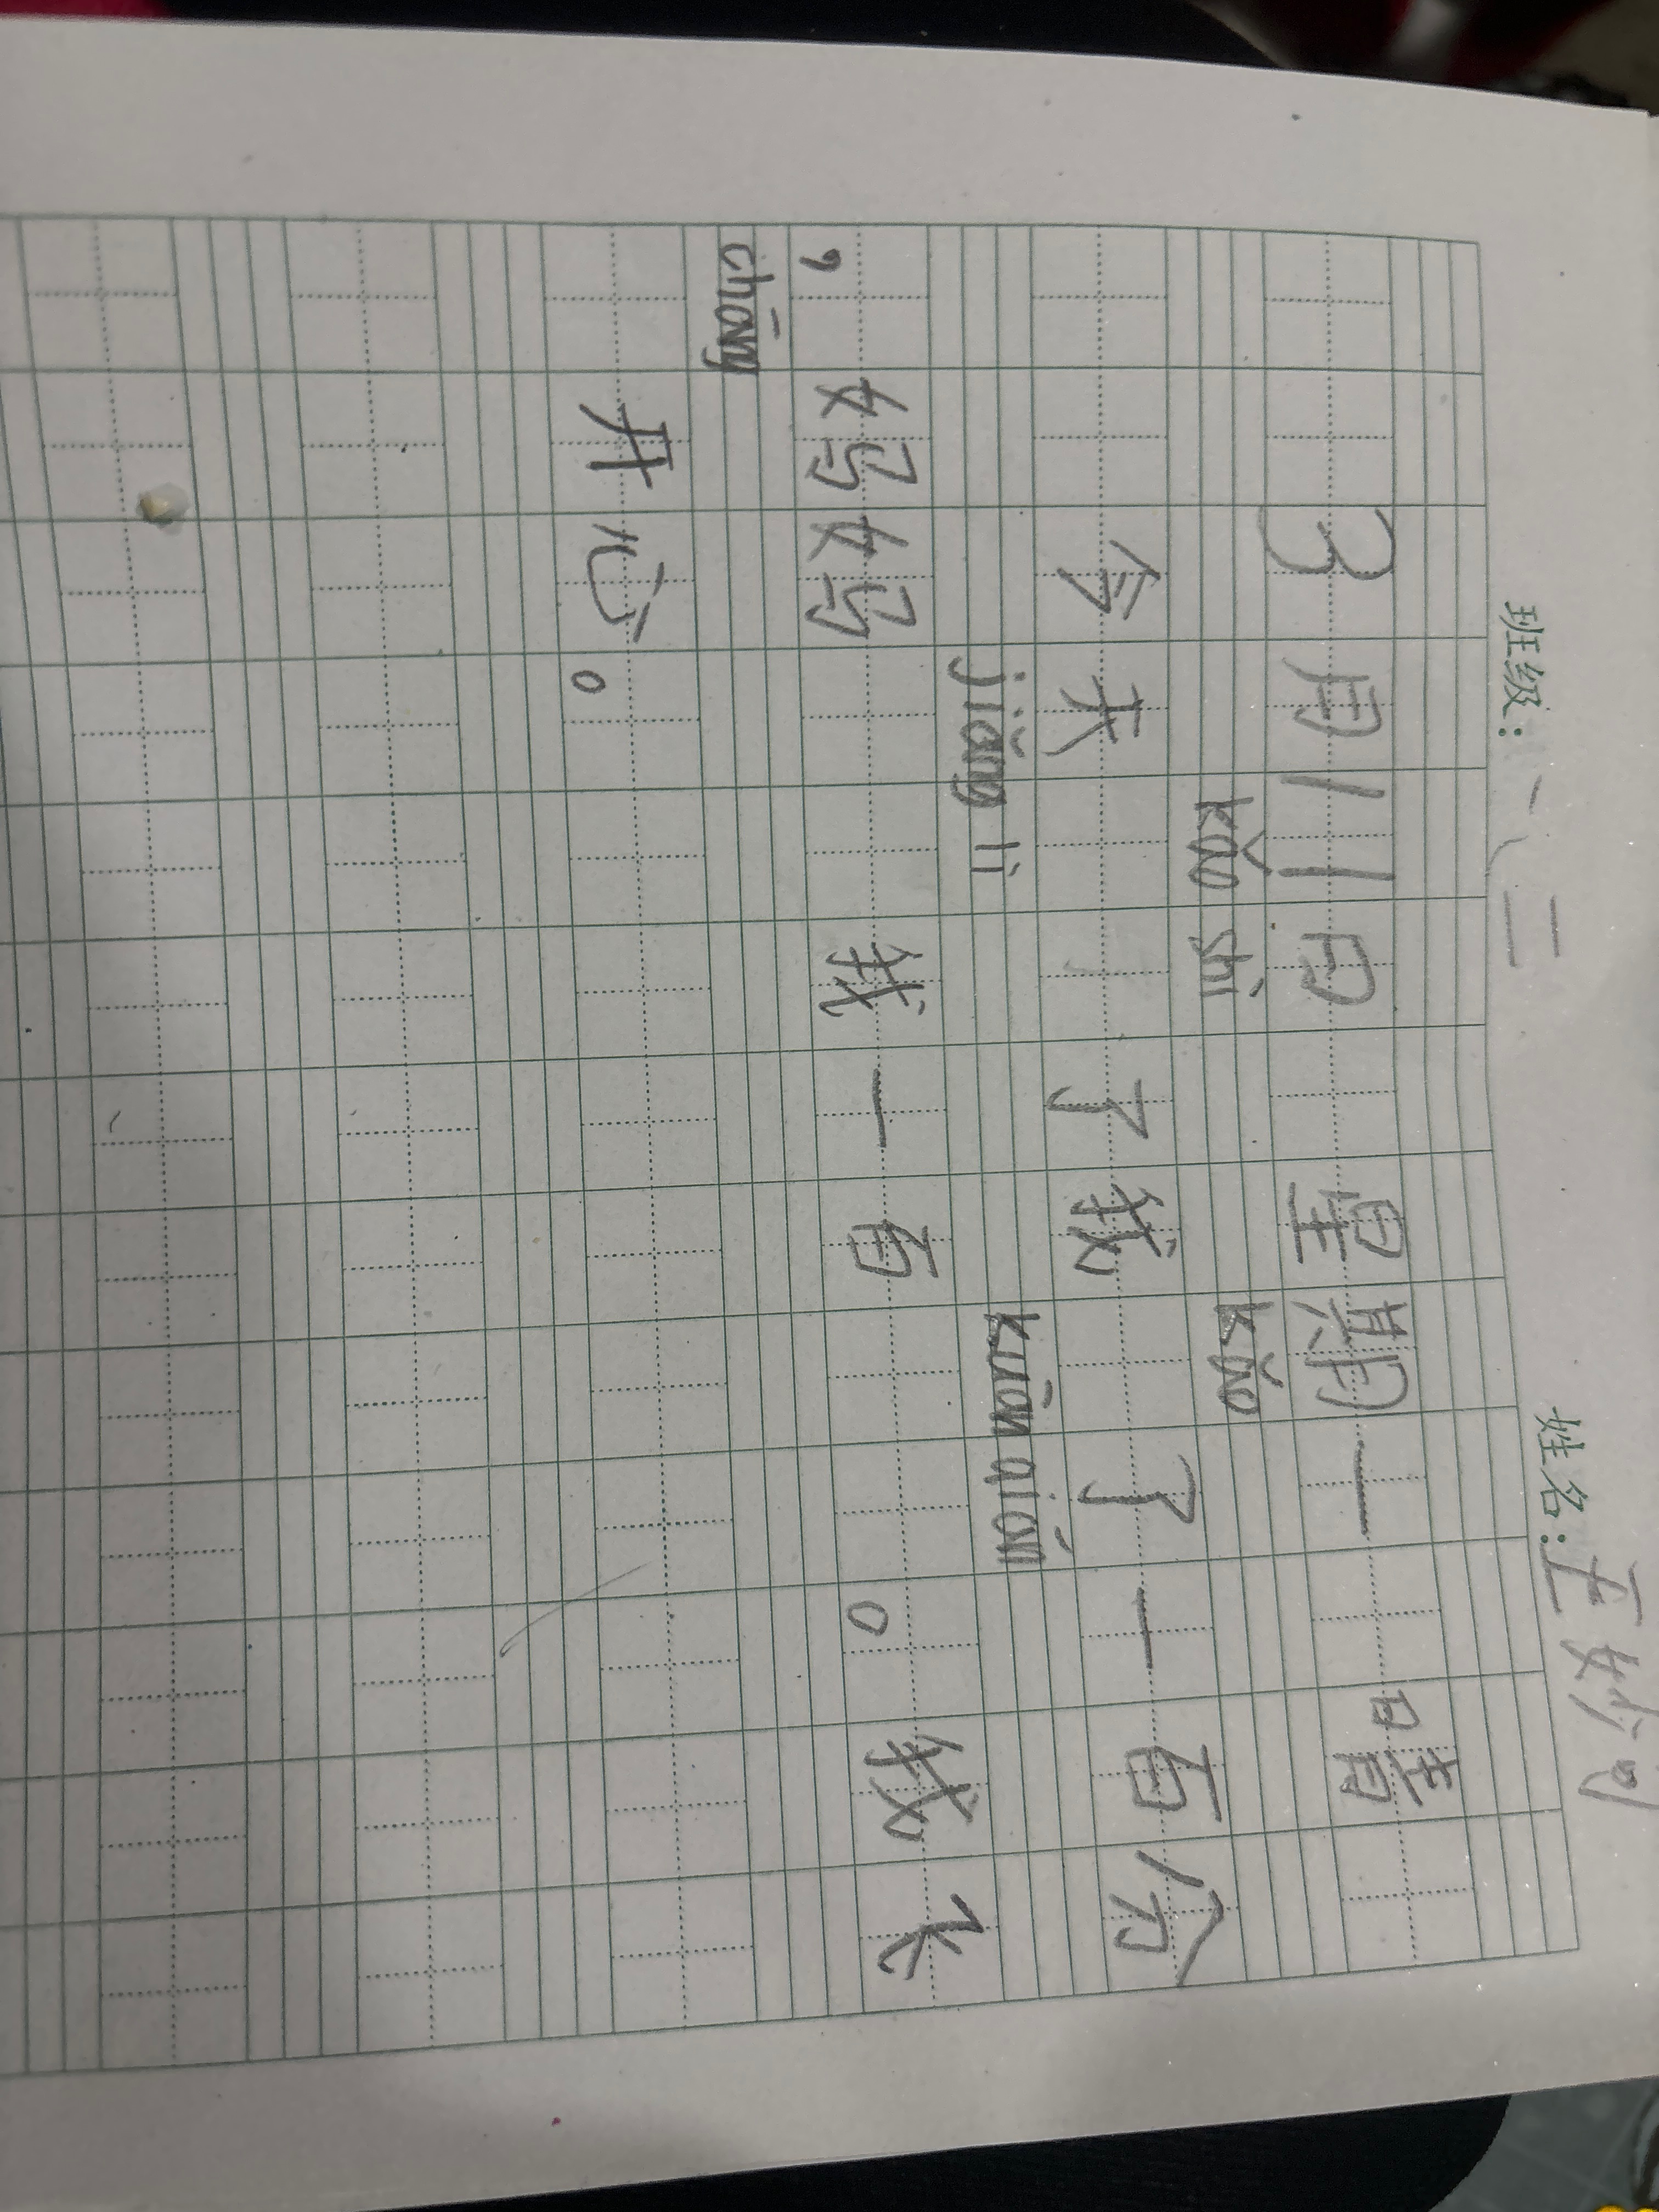 班级：一（二 姓名：王
3月11日 星期一 晴
kǎo shì kǎo
今天 了我 了一百分
jiǎng lì kuān qián
，妈妈 我一百 。我飞
chāng
开心。